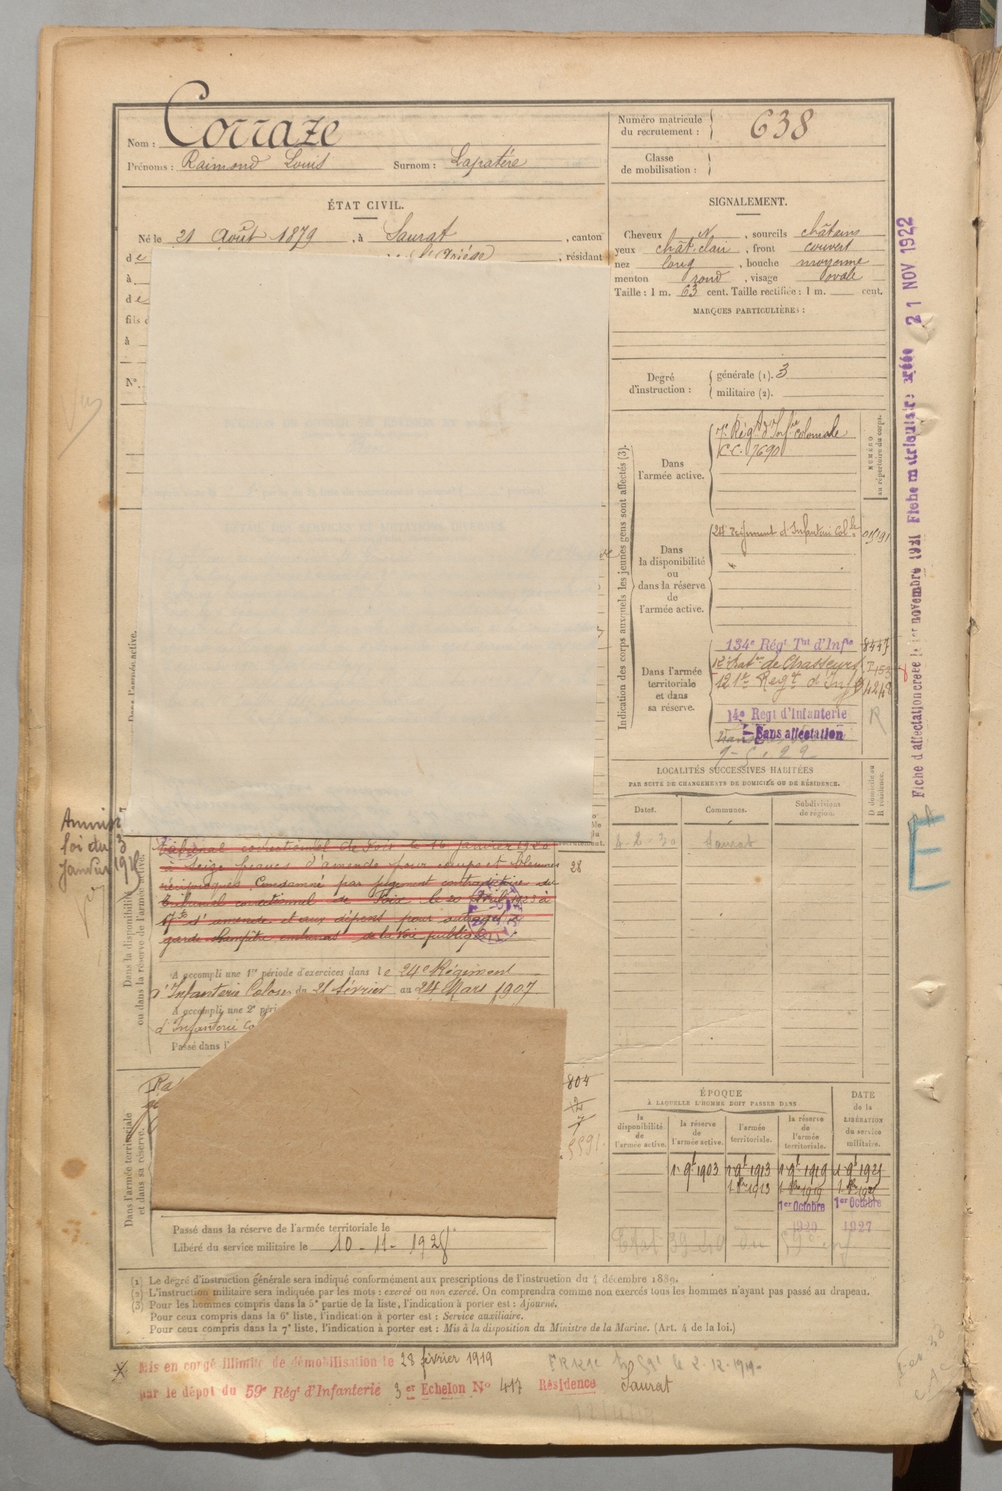 Nom : Corraze
Prénoms : Raimond Louis Surnom : Lapatère
Numéro matricule du recrutement : 638
Classe de mobilisation :
ÉTAT CIVIL.
Né le 21 Août 1879, à Saurat, canton
de l'Ariège, résidant
à
de
fils d
à
N°.
SIGNALEMENT.
Cheveux N, sourcils châtains
yeux chât. clair, front couvert
nez long, bouche moyenne
menton rond, visage ovale
Taille : 1 m. 63 cent. Taille rectifiée : 1 m. cent.
MARQUES PARTICULIÈRES :
Degré d'instruction : générale (1). 3
militaire (2).
Indication des corps auxquels les jeunes gens sont affectés (3).
NUMÉRO au répertoire du corps.
Dans l'armée active.
7e Régt d'Infie coloniale
C.C. 7690
Dans la disponibilité ou dans la réserve de l'armée active.
24e Régiment d'Infanterie Colle
Dans l'armée territoriale et dans sa réserve.
134e Régt Tal d'Infie 8447
12e Batn de Chasseurs
121e Regt d'Inf
14e Regt d'Infanterie R
Sans affectation
9-5-22
Fiche d'affectation créée le 1er novembre 1921 Fiche matriculaire créée 21 NOV 1922
E
LOCALITÉS SUCCESSIVES HABITÉES
PAR SUITE DE CHANGEMENTS DE DOMICILE OU DE RÉSIDENCE.
D domicile ou R résidence.
Dates. Communes. Subdivisions de région.
8-2-30 Saurat
Dans l'armée active.
Amnistié
loi du 3
Janvier 1925
Dans la disponibilité ou dans la réserve de l'armée active.
Tribunal correctionnel de Foix le 16 janvier 1920
à seize francs d'amende pour coups et blessures
réciproques. Condamné par jugement contradictoire du
tribunal correctionnel de Foix le 20 Avril 1923 à
d'amende et aux dépens pour outrages à
garde champêtre embarras de la voie publique
28
A accompli une 1re période d'exercices dans le 24e Régiment
d'Infanterie Colon du 21 février au 24 Mars 1907
A accompli une 2e péri
d'Infanterie Co
Passé dans l'
Dans l'armée territoriale et dans sa réserve.
804
Passé dans la réserve de l'armée territoriale le
Libéré du service militaire le 10-11-1928
ÉPOQUE
À LAQUELLE L'HOMME DOIT PASSER DANS
la disponibilité de l'armée active.
la réserve de l'armée active.
l'armée territoriale.
la réserve de l'armée territoriale.
DATE de la LIBÉRATION du service militaire.
1er 9bre 1903 1er 9bre 1913 1er 9bre 1919 1er 9bre 1925
1er Octobre 1er Octobre
1920 1927
(1) Le degré d'instruction générale sera indiqué conformément aux prescriptions de l'instruction du 4 décembre 1889.
(2) L'instruction militaire sera indiquée par les mots : exercé ou non exercé. On comprendra comme non exercés tous les hommes n'ayant pas passé au drapeau.
(3) Pour les hommes compris dans la 5e partie de la liste, l'indication à porter est : Ajourné.
Pour ceux compris dans la 6e liste, l'indication à porter est : Service auxiliaire.
Pour ceux compris dans la 7e liste, l'indication à porter est : Mis à la disposition du Ministre de la Marine. (Art. 4 de la loi.)
Mis en congé illimité de démobilisation le 28 février 1919
par le dépôt du 59e Régt d'Infanterie 3er Echelon No 417 Résidence Saurat